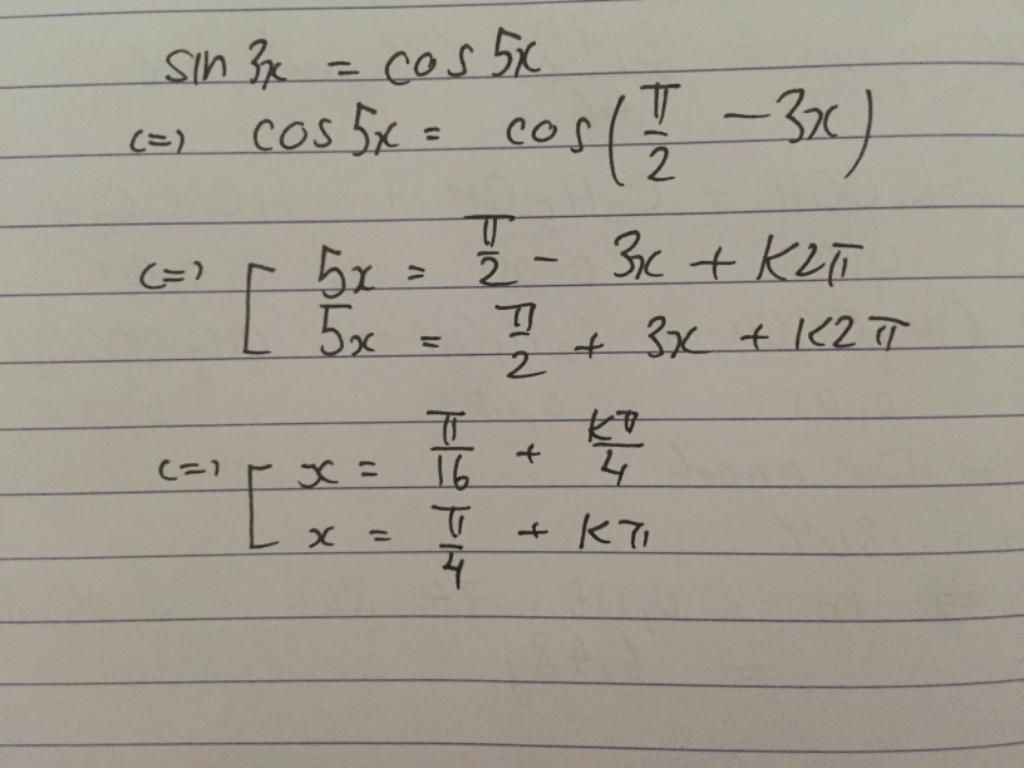 sin 3x = cos 5x
(=) cos 5x = cos(π/2 - 3x)
(=) [ 5x = π/2 - 3x + K2π
5x = π/2 + 3x + K2π
(=) [ x = π/16 + Kπ/4
x = π/4 + Kπ